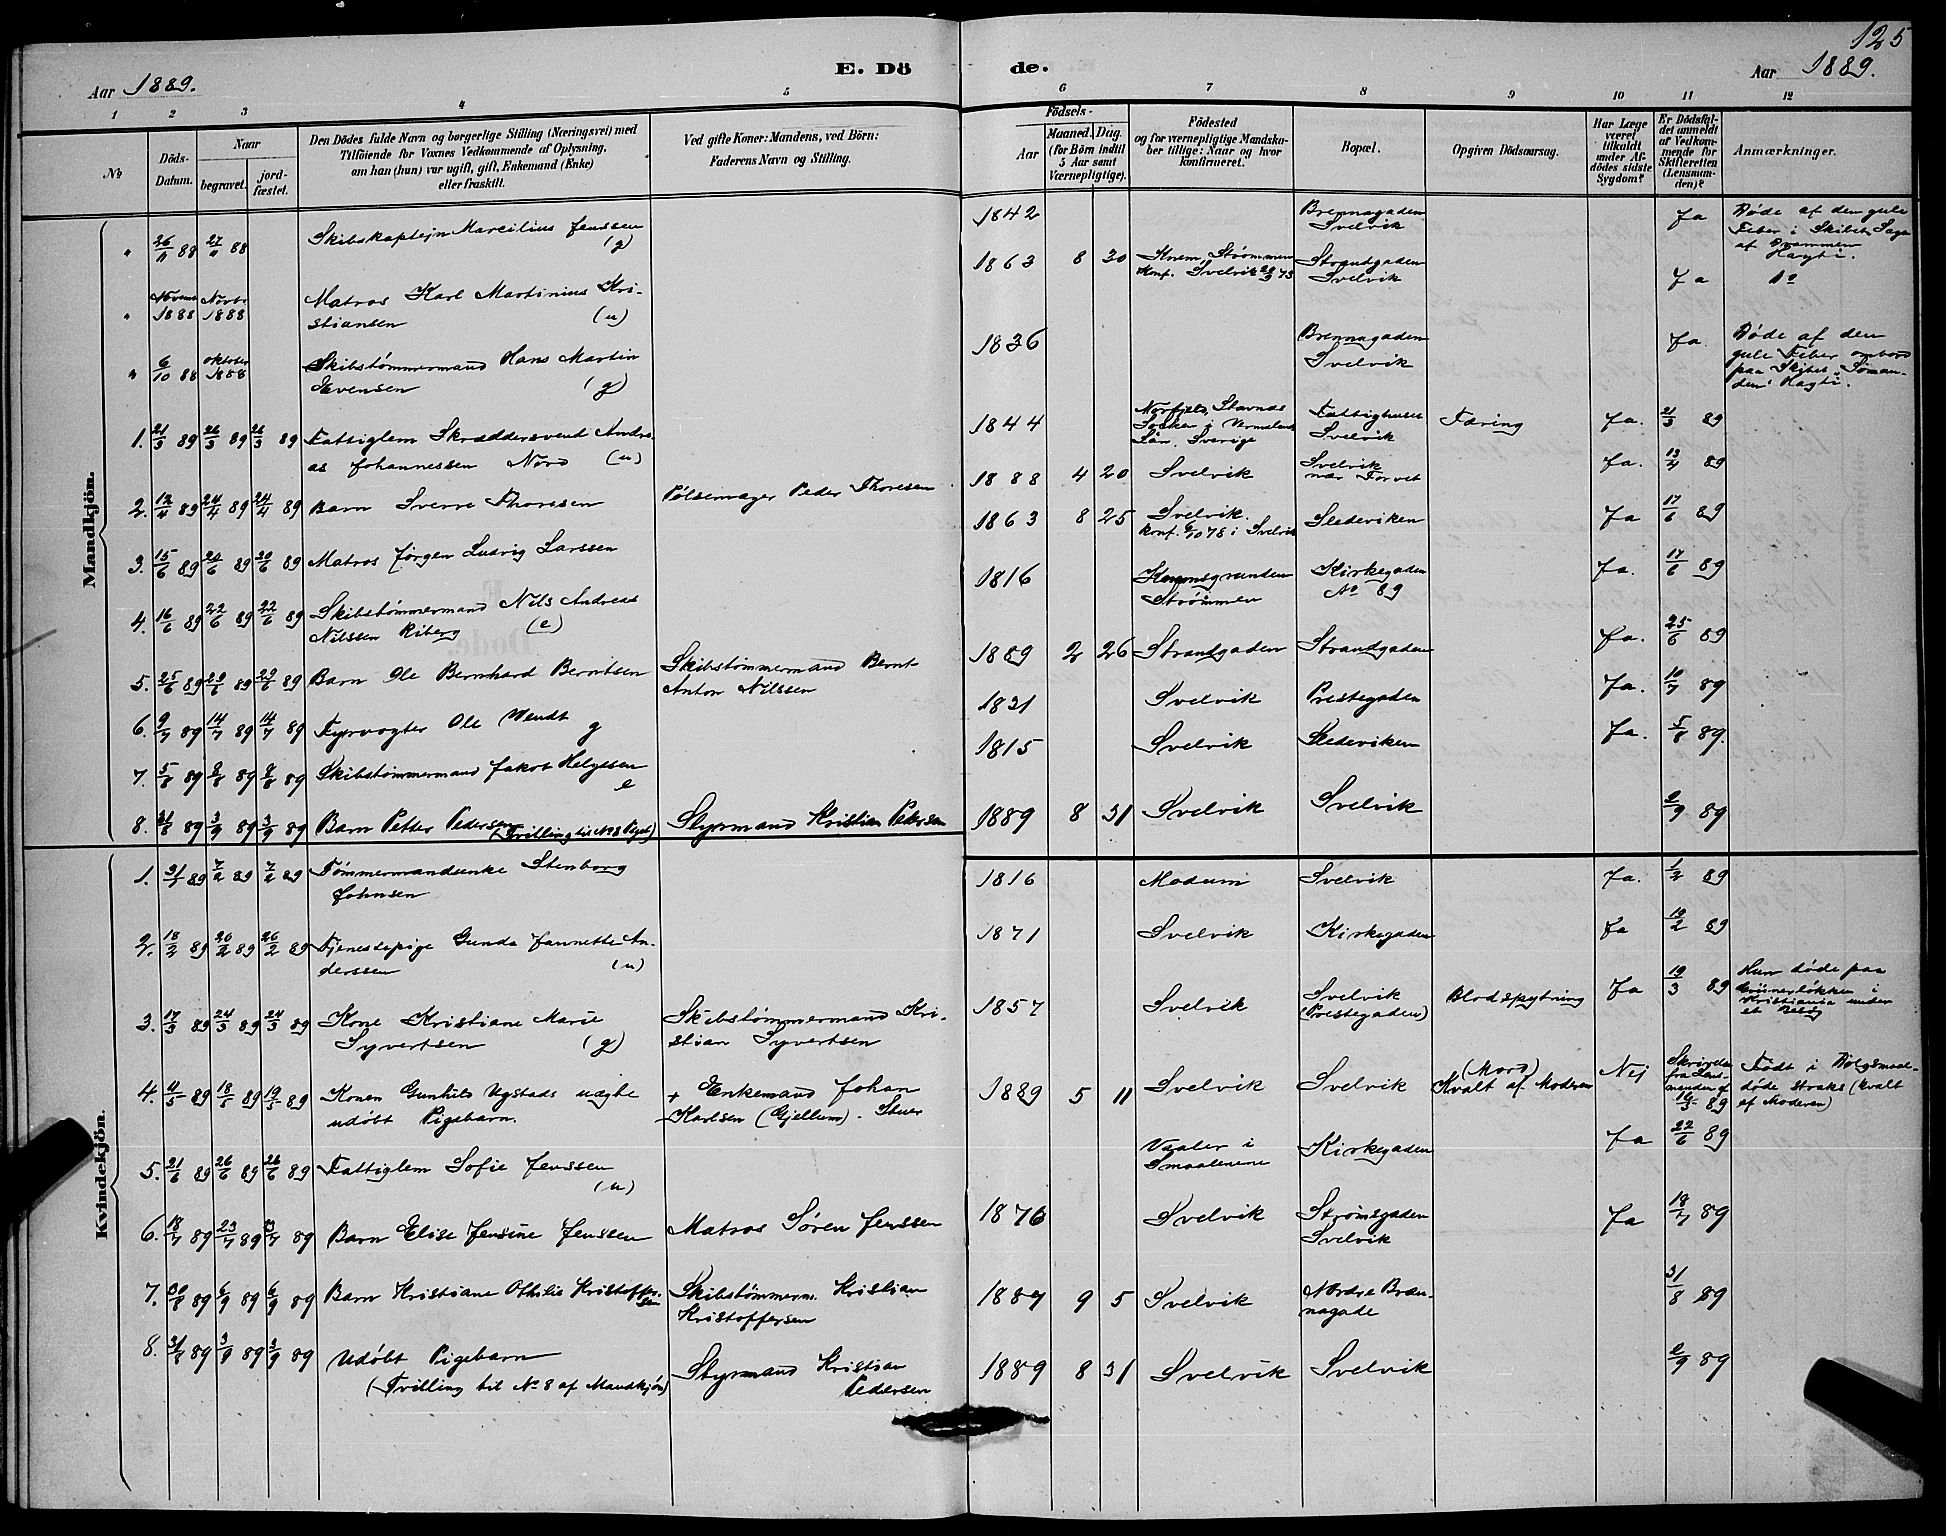 125
Aar 1889.
E. Dö
de.
Aar 1889.
1 2 3 4 5 6 7 8 9 10 11 12
No
Döds-
Datum.
Naar
begravet.
jord-
fæstet.
Den Dödes fulde Navn og borgerlige Stilling (Næringsvei) med
Tilföiende for Voxnes Vedkommende af Oplysning,
om han (hun) var ugift, gift, Enkemand (Enke)
eller fraskilt.
Ved gifte Koner: Mandens, ved Börn:
Faderens Navn og Stilling.
Födsels-
Aar
Maaned.
Dag.
(for Børn indtil
5 Aar samt
Værnepligtige).
Födested
og for værnepligtige Mandska-
ber tillige: Naar og hvor
konfirmeret.
Bopæl.
Opgiven Dödsaarsag.
Har Læge
været
tilkaldt
under Af-
dödes sidste
Sygdom?
Er Dödsfal-
det anmeldt
af Vedkom-
mende for
Skifteretten
(Lensman-
den)?
Anmærkninger.
Mandkjön.
" 26/11 88 27/11 88 Skibskaptejn Marcilius Jenssen
(g)
1842 Brennagaden
Svelvik
Ja Døde af den gule
Feber i Skibet Saga
af Drammen
Hayti.
" Novemb Novbr.
1888 1888
Matros Karl Martinius Kri-
stiansen (u)
1863 8 30 Strømmen
Konf. Svelvik
Strandgaden
Svelvik
Ja Do
" 6/10 88 Oktober
1888
Skibstømmermand Hans Martin
Evensen (g)
1836 Brennagaden
Svelvik
Ja Døde af den
gule Feber ombord
paa Skibet "Søman-
den" Hayti.
1. 21/3 89 26/3 89 26/3 89 Fattiglem Skræddersvend Andre-
as Johannessen Nord (u)
1844 Stavnäs
Socken i Vermlands
Län. Sverige
Fattighuset
Svelvik
Tæring Ja. 21/3 89
2. 12/4 89 24/4 89 24/4 89 Barn Sverre Thoresen
Pølsemager Peder Thoresen
1888 4 20 Svelvik
Svelvik
nær Torvet
Ja. 13/4 89
3. 15/6 89 20/6 89 20/6 89 Matros Jørgen Ludvig Larssen
1863 8 25 Svelvik.
konf. 6/10 78 i Svelvik
Sledeviken Ja 17/6 89
4. 16/6 89 22/6 89 22/6 89 Skibstømmermand Nils Andreas
Nilssen Riberg (e)
1816
Strømmen
Kirkegaden
No 89
Ja. 17/6 89
5. 25/6 89 29/6 89 29/6 89 Barn Ole Bernhard Berntsen
Skibstømmermand Bernt
Anton Nilssen
1889 2 26 Strandgaden Strandgaden Ja. 25/6 89
6. 9/7 89 14/7 89 14/7 89 Fyrvogter Ole Wendt g
1821 Svelvik Prestegaden Ja. 10/7 89
7. 5/8 89 8/8 89 8/8 89 Skibstømmermand Jakob Helgesen
e
1815 Svelvik Sledeviken Ja. 5/8 89.
8. 31/8 89 3/9 89 3/9 89 Barn Petter Pedersen
(Tvilling til No 8 Piget)
Styrmand Kristian Pedersen
1889 8 31 Svelvik Svelvik 2/9 89
Kvindekjön.
1. 31/1 89 7/2 89 7/2 89 Tømmermandsenke Stenborg
Johnsen
1816 Modum Svelvik Ja. 1/2 89
2. 18/2 89 26/2 89 26/2 89 Tjenestepige Gunda Jannette An-
derssen (u)
1871 Svelvik Kirkegaden Ja 19/2 89
3. 17/3 89 24/3 89 24/3 89 Kone Kristiane Marie
Syvertsen (g)
Skibstømmermand Kri-
stian Syvertsen
1857 Svelvik
Svelvik
(Prestegaden)
Blodspytning Ja 19/3 89
Hun døde paa
Grünerløkken i
Kristiania under
et Besøg
4. 11/5 89 18/5 89 19/5 89 Konen Gunhild Ugstads uægte
udøbt Pigebarn.
+ Enkemand Johan
Karlsen (Gjellum).
1889 5 11 Svelvik Svelvik
(Mord)
Kvalt af Moderen
Nej
Skrivelse
fra Lens-
manden af
89
Født i Dølgsmaal-
døde straks (kvalt
af Moderen)
5. 21/6 89 26/6 89 26/6 89 Fattiglem Sofie Jenssen
(u)
Vaaler i
Smaalenene
Kirkegaden Ja 22/6 89
6. 18/7 89 23/7 89 23/7 89 Barn Elise Jensine Jenssen
Matros Søren Jenssen
1876 Svelvik
Strømsgaden
Svelvik
Ja 19/7 89
7. 30/8 89 6/9 89 6/9 89 Barn Kristiane Othilie Kristoffer-
sen
Skibstømmerm. Kristian
Kristoffersen
1887 9 5 Svelvik
Nordre Bren-
nagade
31/8 89
8. 31/8 89 3/9 89 3/9 89 Udøbt Pigebarn
(Tvilling til No 8 af Mandkjøn)
Styrmand Kristian
Pedersen
1889 8 31 Svelvik Svelvik 2/9 89